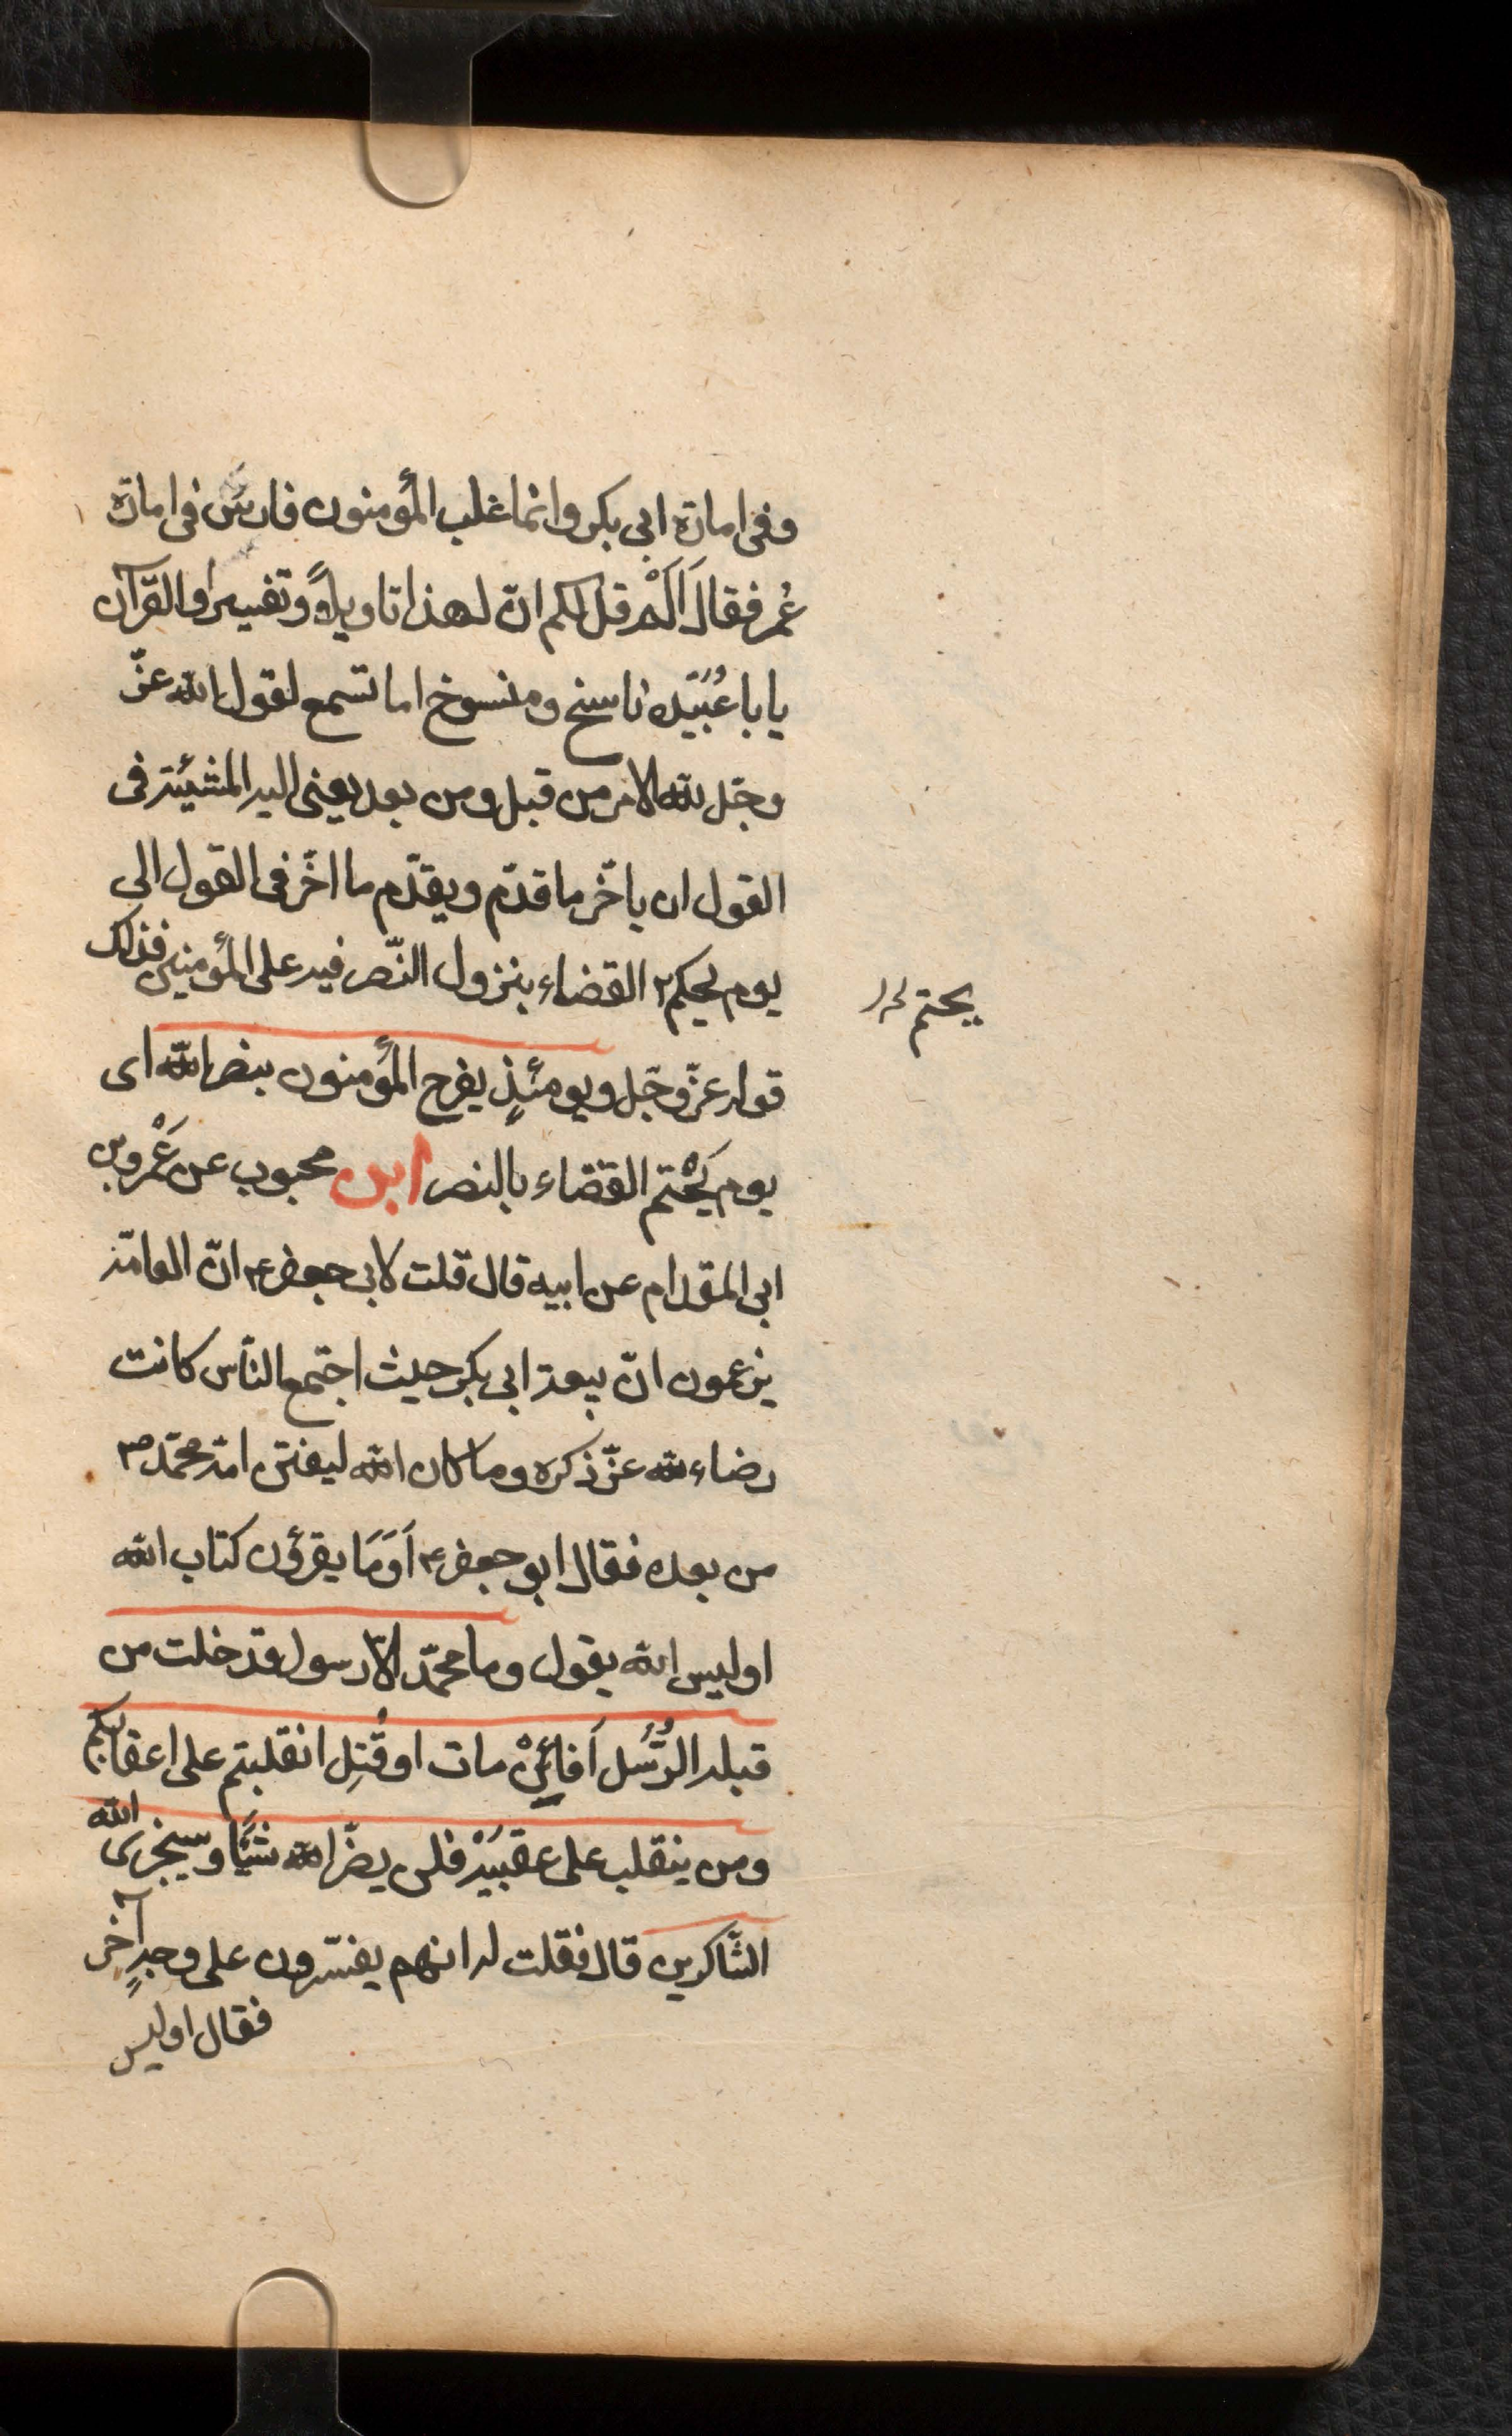 وفى امارة ابى بكر وانما غلب المؤمنون فارس فى امارة
عُمر فقالَ اَلَمْ اقل لكم انّ لهذا تاويلاً وتفسيرا والقرآن
يابا عُبَيْده ناسخ ومنسوخ اما تسمع لقول الله عزّ
وجلّ لله الامر من قبل ومن بعد يعنى اليه المشيئة فى
القول ان ياخّر ما قدّم ويقدّم ما اخّر فى القول الى
يوم يحكم ٢ القضاء بنزول النّصر فيه على المؤمنين فذلك
يحتم
قوله عزّ وجلّ ويومئذٍ يفرح المؤمنون بنصر الله اى
يوم يَحْتم القضاء بالنصر ابن محبوب عن عَمْرو بن
ابى المقدام عن ابيه قال قلت لابى جعفر ع انّ العامّة
يزعمون انّ بيعة ابى بكر حيث اجتمع النّاس كانت
رضاء لله عزّ ذكره وما كان الله ليفتن امّة محمّد ص
من بعده فقال ابو جعفر ع اَوَمَا يقرؤن كتاب الله
اوليس الله يقول وما محمّد الّا رسول قد خلت من
قبله الرُّسُل اَفائِنْ مات او قُتِل انقلبتم على اعقابكم
ومن ينقلب على عقبَيْه فلن يضرّ الله شيئًا وسيجزى الله
الشّاكرين قال فقلت له انهم يفسّرون على وجهٍ آخر
فقال اوليس